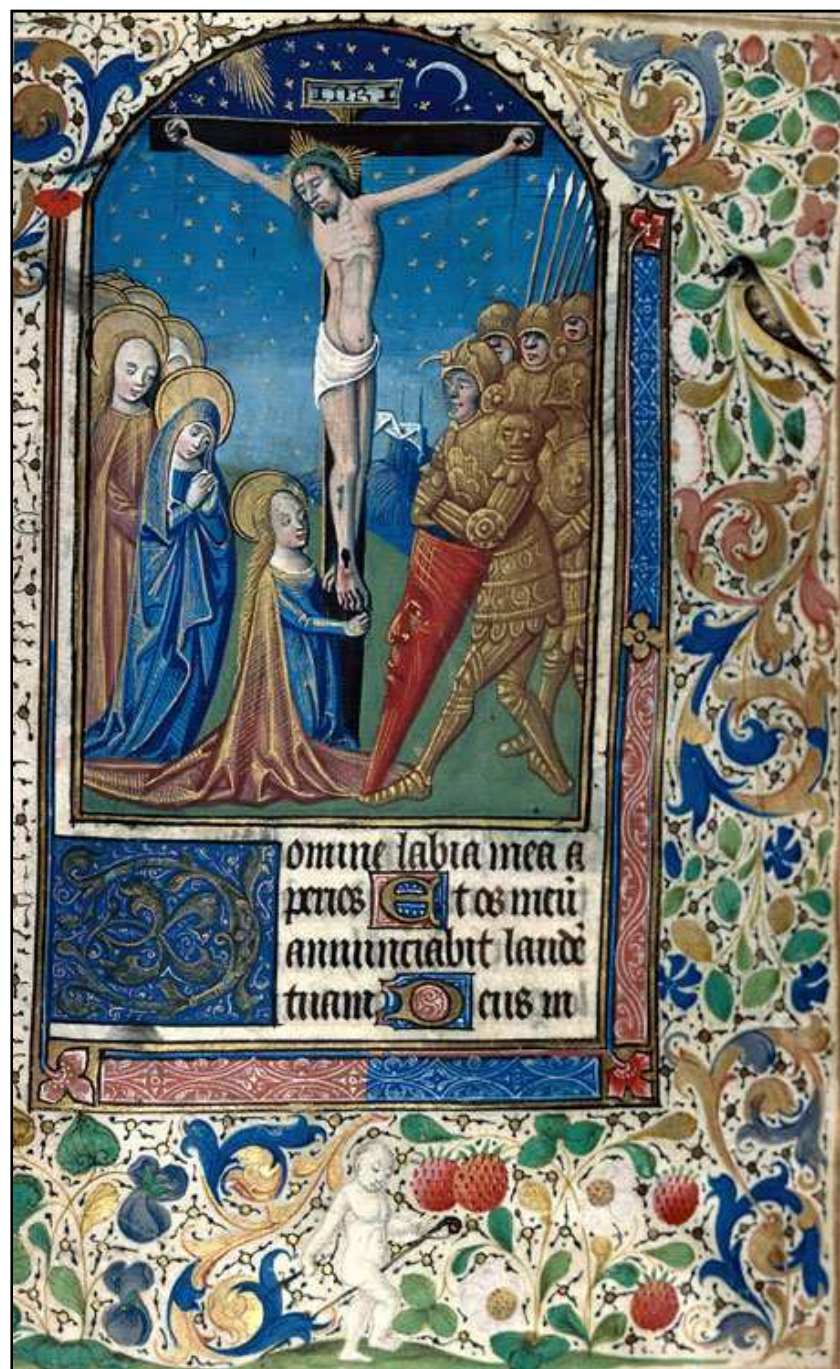 INRI
Domine labia mea a
peries Et os meū
annunciabit laudē
tuam Deus in